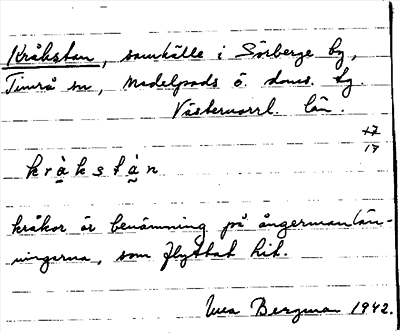 Kråkstan, samhälle i Sörberge by,
Timrå sn, Medelpads ö. doms. tg.
Västernorrl. län.
17
17
k r å k s t à n
kråkor är benämning på ångermanlän-
ningarna, som flyttat hit.
Bergman 1942.